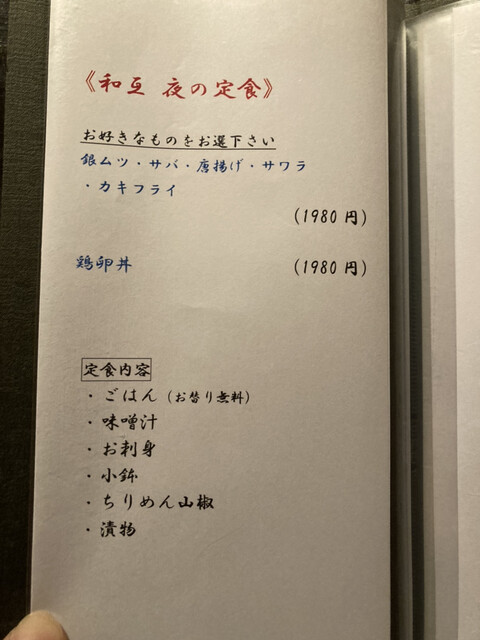 《和互 夜の定食》
お好きなものをお選下さい
銀ムツ・サバ・唐揚げ・サワラ
・カキフライ
(1980 円)
鶏卵丼 (1980 円)
定食内容
・ごはん(お替り無料)
・味噌汁
・お刺身
・小鉢
・ちりめん山椒
・漬物